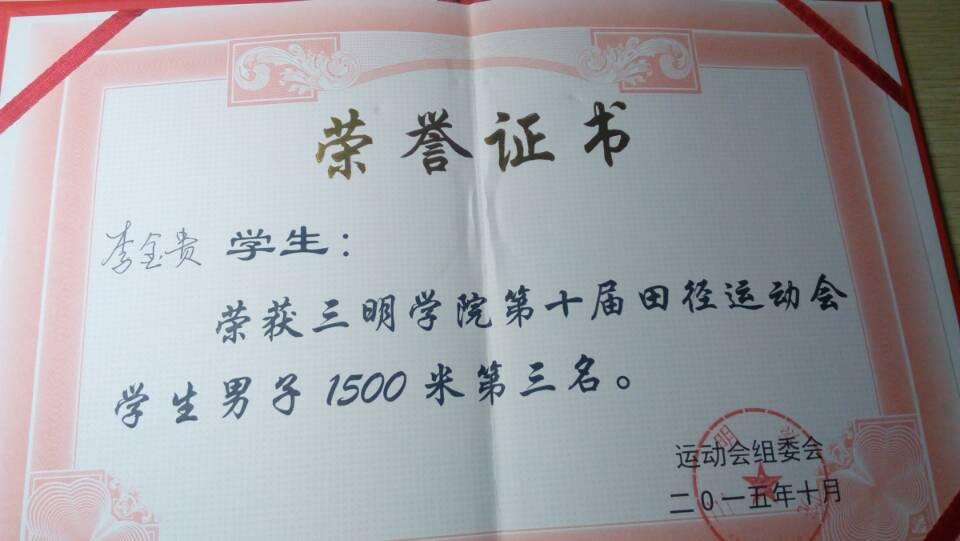 荣誉证书
李金贵 学生：
荣获三明学院第十届田径运动会
学生男子1500米第三名。
运动会组委会
二〇一五年十月